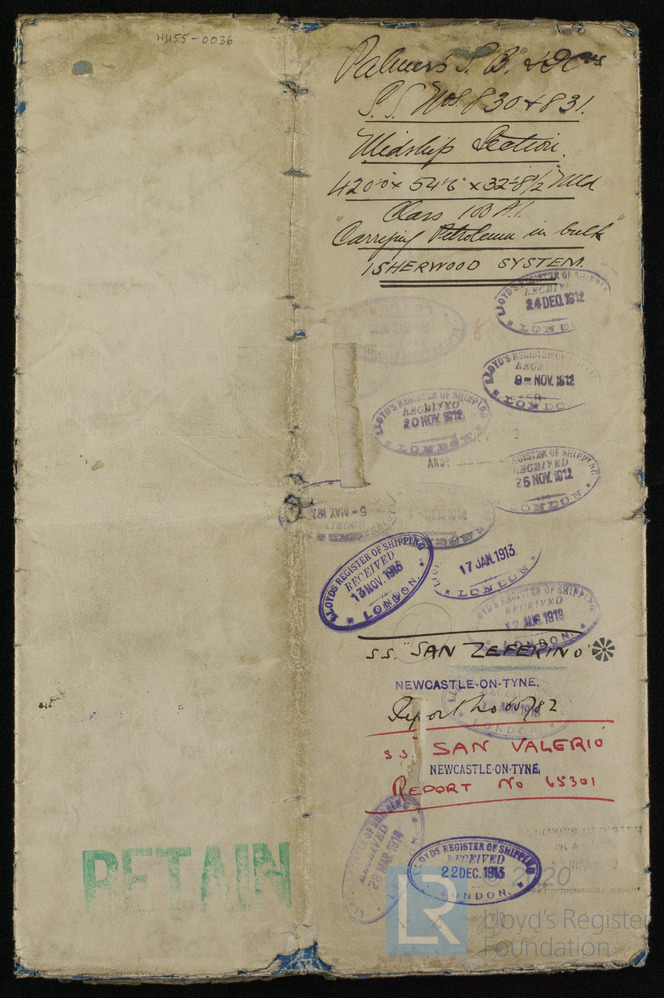 W455-0036
Palmers S. B. & I Coys
S.S. Nos 830 & 831.
Midship Section.
420'0 x 54'6 x 32'8½ Mld
Class 100 A.1.
"Carrying Petroleum in bulk"
ISHERWOOD SYSTEM.
LLOYD'S REGISTER OF SHIPPING
RECEIVED
24 DEC. 1912
LONDON
8
LLOYD'S REGISTER
9 - NOV. 1912
LONDON
LLOYD'S REGISTER OF SHIPPING
RECEIVED
20 NOV. 1912
LONDON
REGISTER OF SHIPPING
RECEIVED
25 NOV. 1912
LONDON
6 - MAY 192
LLOYDS REGISTER OF SHIPPING
RECEIVED
13 NOV. 1913
LONDON.
17 JAN. 1913
LONDON
LLOYD'S REGISTER OF SHIPPING
RECEIVED
12 AUG. 1913
LONDON.
S.S. "SAN ZEFERINO"
NEWCASTLE-ON-TYNE.
Report No 65782
LONDON
S.S. SAN VALERIO
NEWCASTLE-ON-TYNE.
REPORT No 65301
REGISTER OF SHIPPING
RECEIVED
28 MAR. 1914
LLOYDS REGISTER OF SHIPPING
RECEIVED
22 DEC. 1913
LONDON.
RETAIN
LR
Lloyd's Register
Foundation